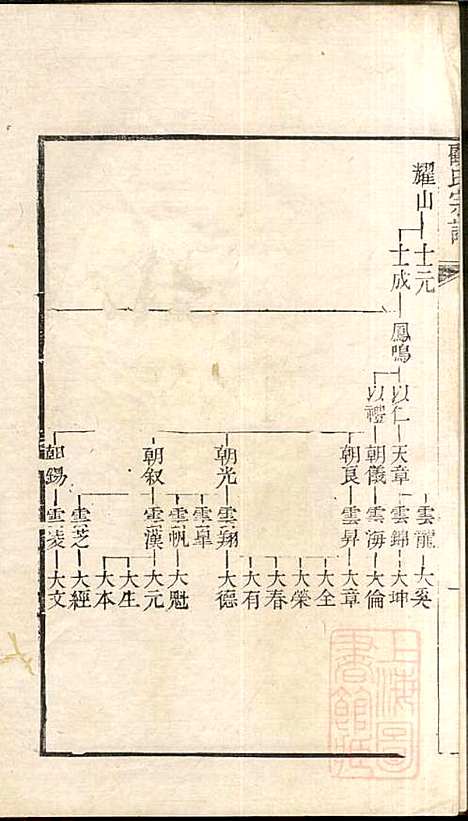 耀山
士元
士成
鳳鳴
以仁
以禮
天章
朝儀
朝良
朝光
朝叙
朝錫
雲龍
雲錦
雲海
雲昇
雲翔
雲阜
雲帆
雲漢
雲芝
雲凌
大奚
大坤
大倫
大章
大全
大榮
大春
大有
大德
大魁
大元
大生
大本
大經
大文
上海圖書館藏